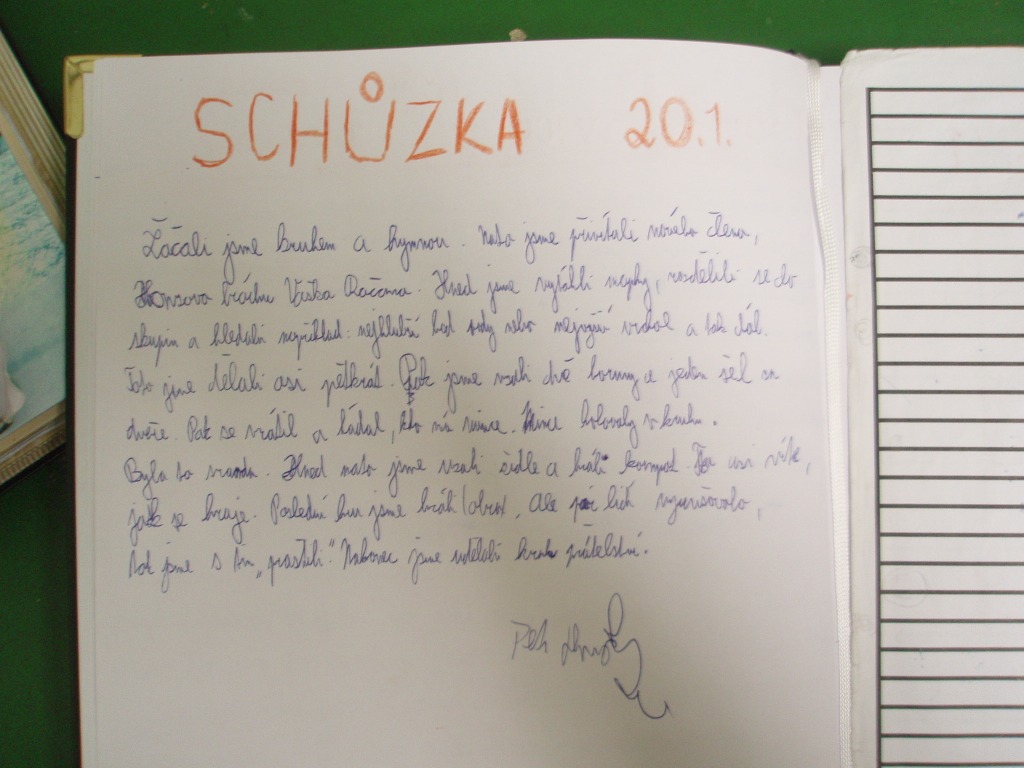 SCHŮZKA 20.1.
Začali jsme kruhem a hymnou. Nato jsme přivítali nového člena,
Honzova bráchu Vaška. Hned jsme vytáhli mapy, rozdělili se do
skupin a hledali například: nejhlubší bod vody nebo nejvyšší vrchol a tak dál.
Toto jsme dělali asi pětkrát. Pak jsme vzali dvě koruny a jeden šel za
dveře. Pak se vrátil a hádal, kdo má mince. Mince kolovaly v kruhu.
Byla to sranda. Hned nato jsme vzali židle a hráli kompot. Ten asi víte,
jak se hraje. Poslední hru jsme hráli , ale pár lidí vyrušovalo,
tak jsme s tím „praštili". Nakonec jsme udělali kruh přátelství.
Petr